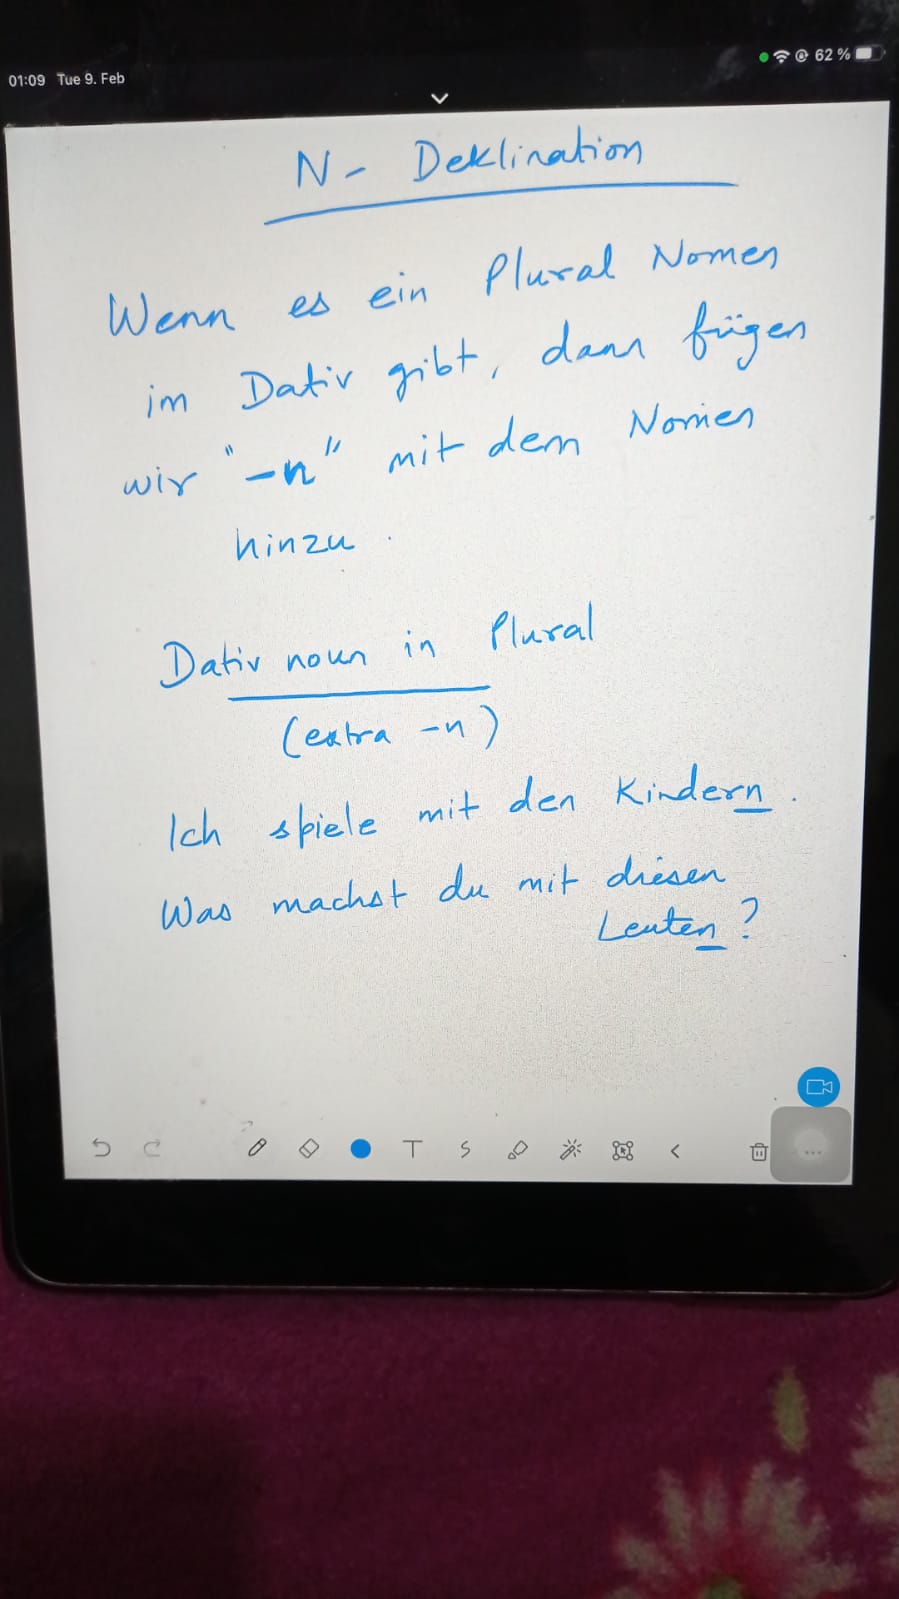 01:09 Tue 9. Feb
62 %
N- Deklination
Wenn es ein Plural Nomen
im Dativ gibt, dann fügen
wir "-n" mit dem Nomen
hinzu.
Dativ noun in Plural
(extra -n)
Ich spiele mit den Kindern.
Was machst du mit diesen
Leuten?
T